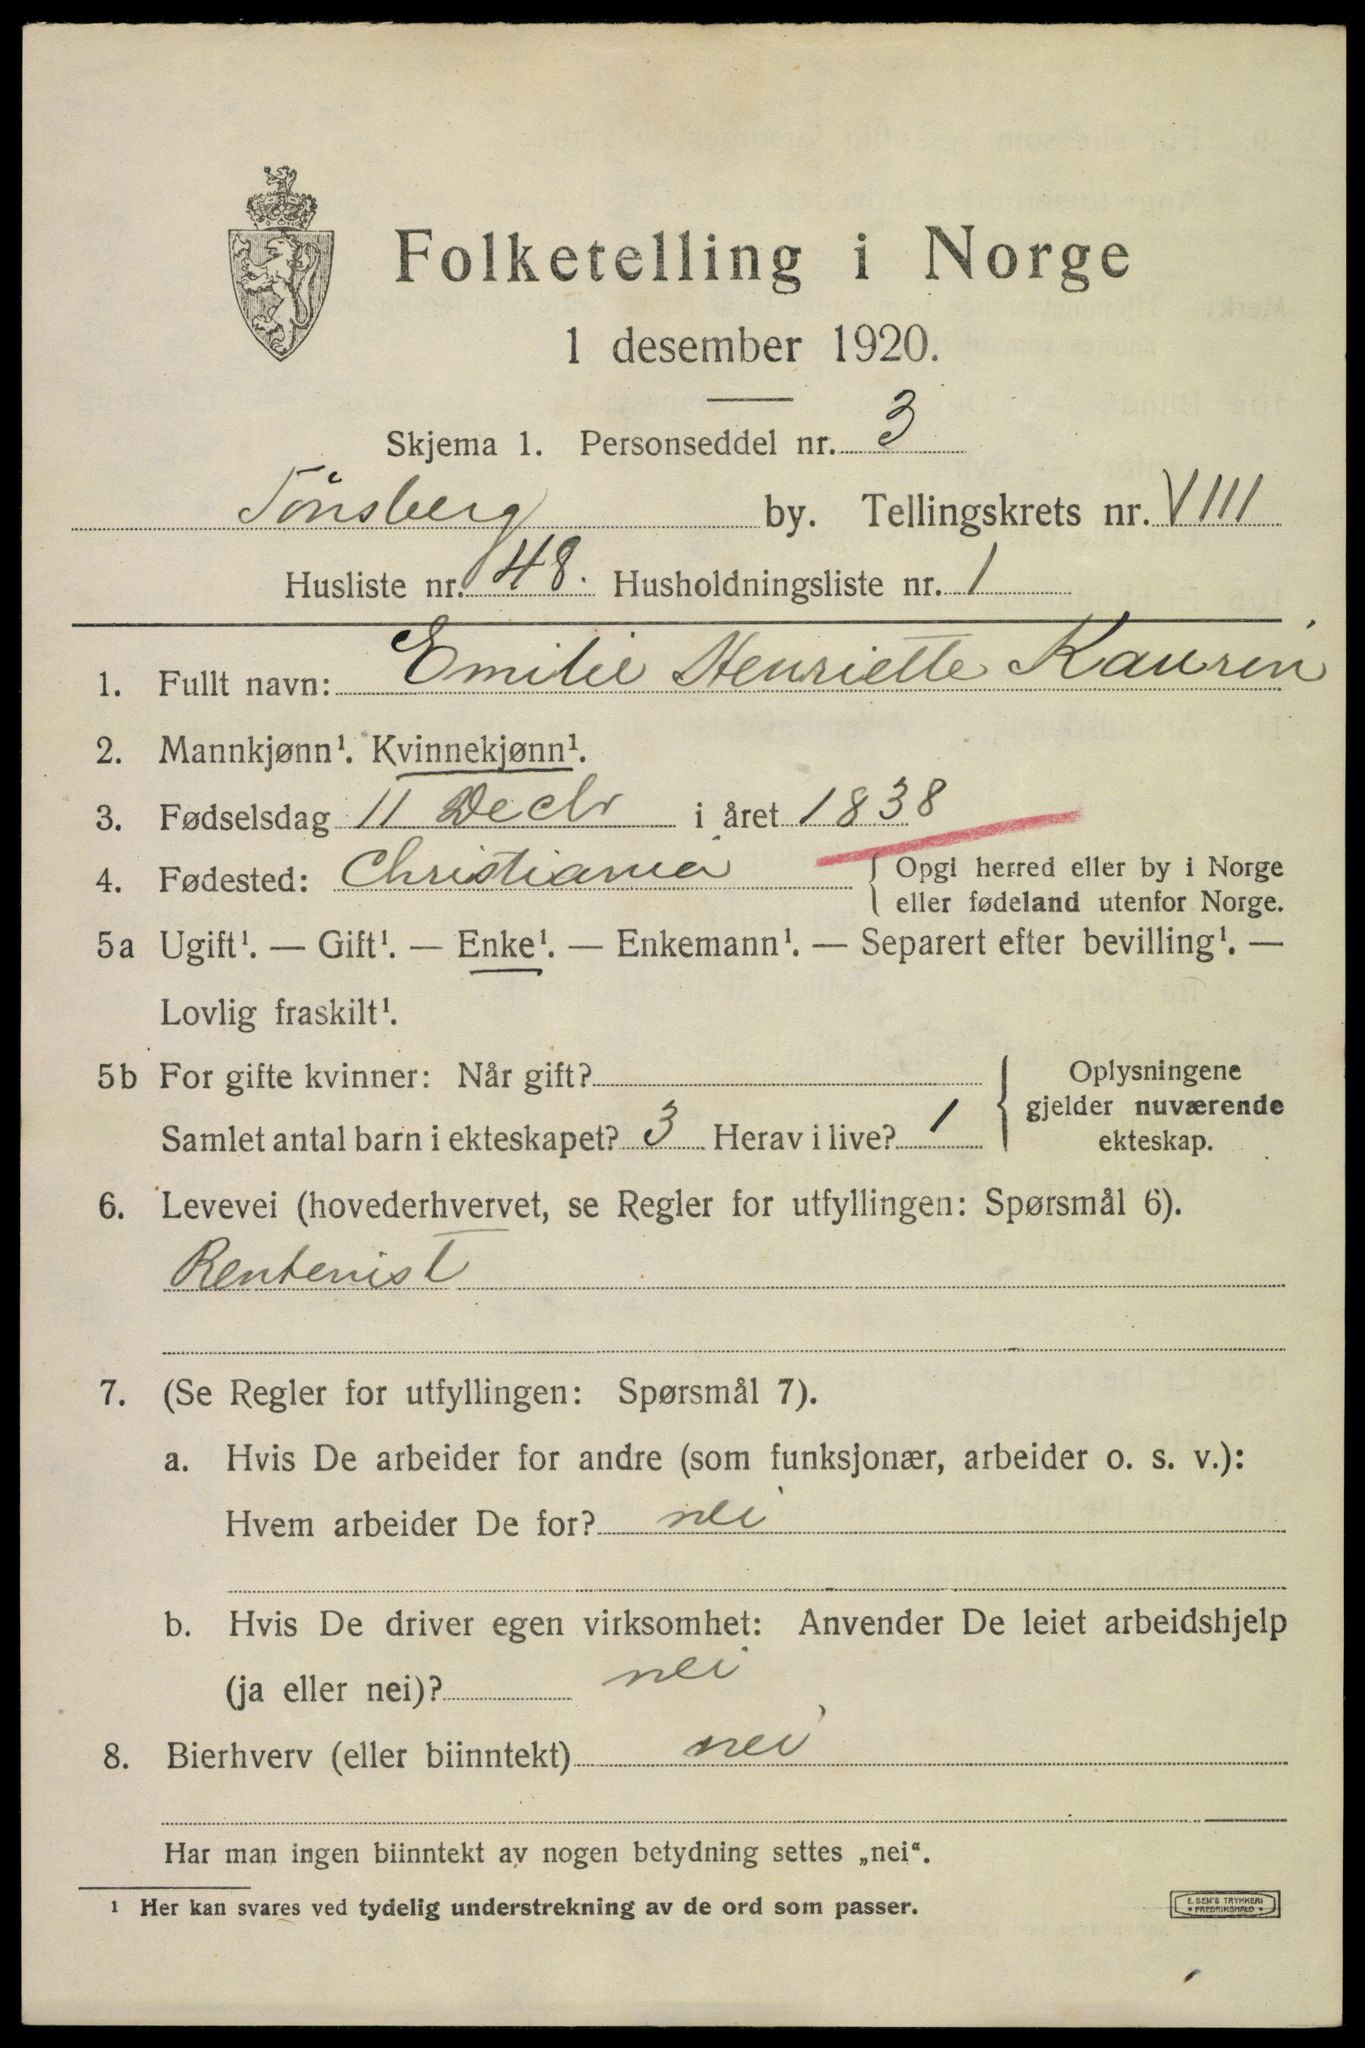 Folketelling i Norge
1 desember 1920.
Skjema 1. Personseddel nr. 3
Tönsberg by. Tellingskrets nr. VIII
Husliste nr. 48. Husholdningsliste nr. 1
1. Fullt navn: Emilie Henriette Kaurin
2. Mannkjønn¹. Kvinnekjønn¹.
3. Fødselsdag 11 Decbr i året 1838
4. Fødested: Christiania { Opgi herred eller by i Norge
eller fødeland utenfor Norge.
5a Ugift¹. — Gift¹. — Enke¹. — Enkemann¹. — Separert efter bevilling¹. —
Lovlig fraskilt¹.
5b For gifte kvinner: Når gift?
Samlet antal barn i ekteskapet? 3 Herav i live? 1
{ Oplysningene
gjelder nuværende
ekteskap.
6. Levevei (hovederhvervet, se Regler for utfyllingen: Spørsmål 6).
Rentenist
7. (Se Regler for utfyllingen: Spørsmål 7).
a. Hvis De arbeider for andre (som funksjonær, arbeider o. s. v.):
Hvem arbeider De for? nei
b. Hvis De driver egen virksomhet: Anvender De leiet arbeidshjelp
(ja eller nei)? nei
8. Bierhverv (eller biinntekt) nei
Har man ingen biinntekt av nogen betydning settes „nei“.
¹ Her kan svares ved tydelig understrekning av de ord som passer.
E. SEM'S TRYKKERI
* FREDRIKSHALD *